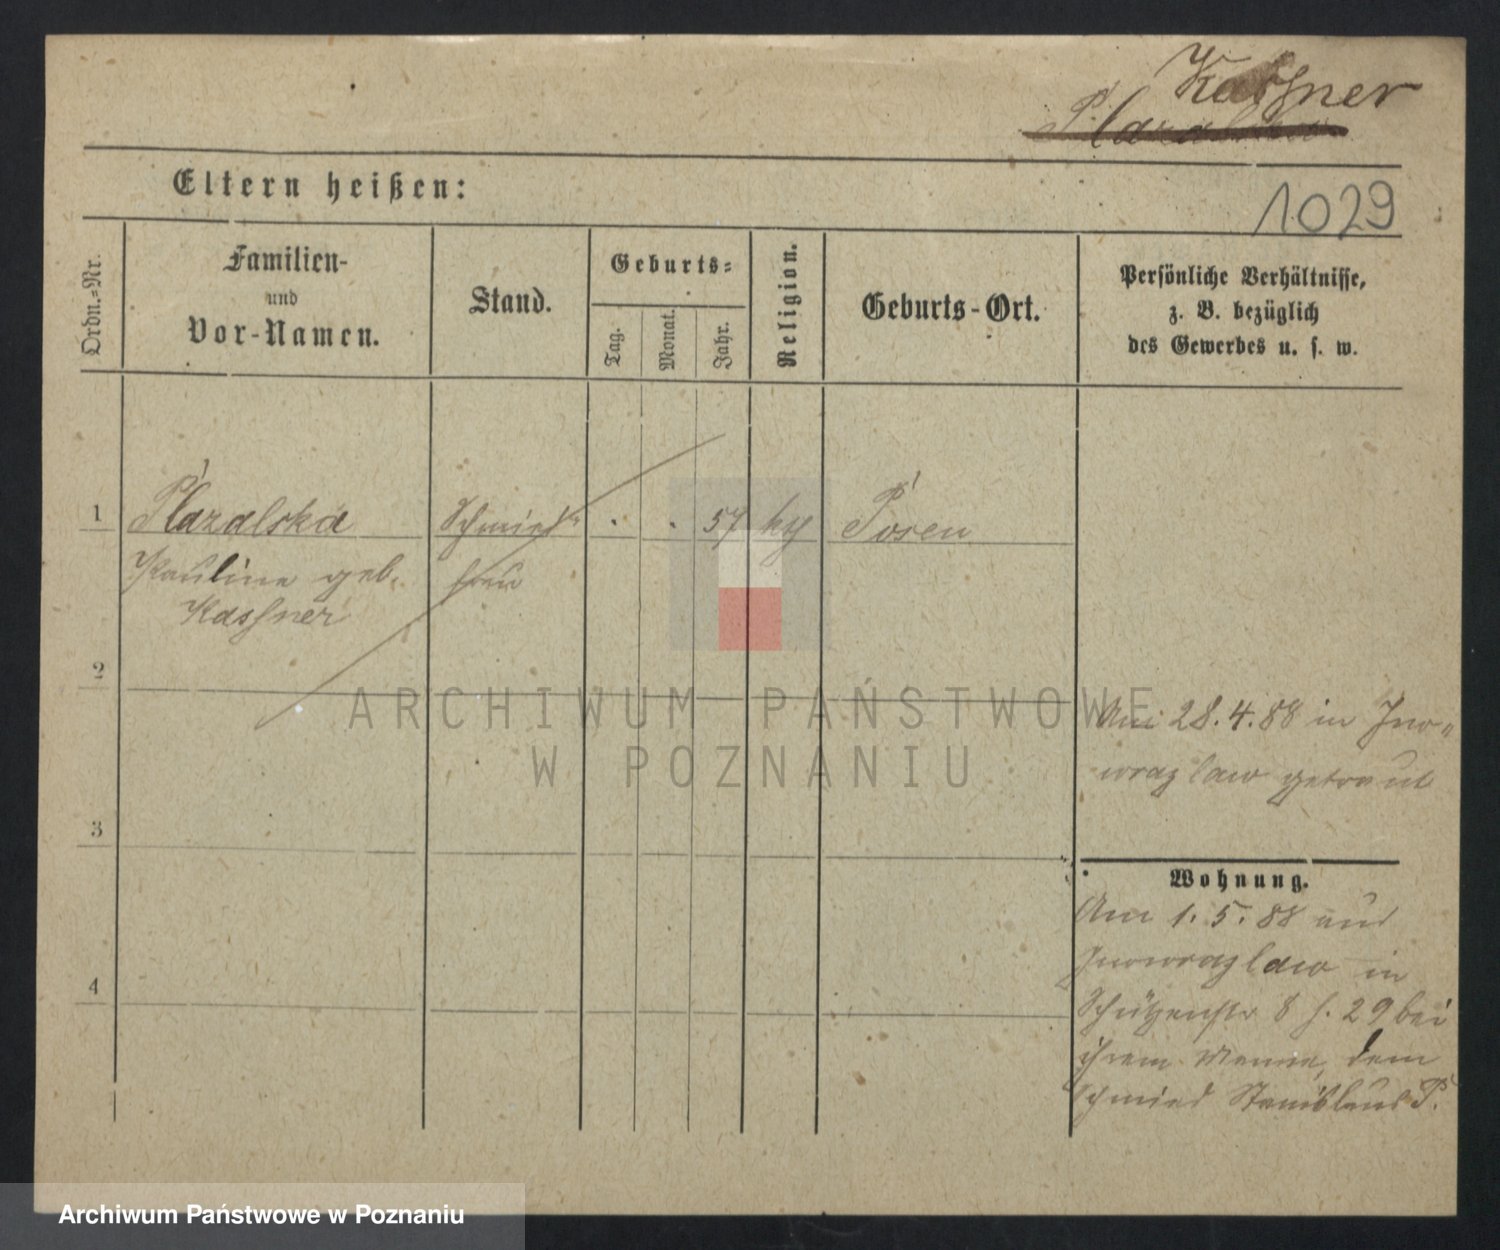 Kassner
Plazalska
Eltern heißen:
1029
Ordn.=Nr.
Familien-
und
Vor-Namen.
Stand.
Geburts=
Tag.
Monat.
Jahr.
Religion.
Geburts-Ort.
Persönliche Verhältnisse,
z. B. bezüglich
des Gewerbes u. s. w.
1 Plazalska Schmied . . 57 ky Posen
Pauline geb. frau
Kassner
2
Am 28.4.88 in Ino=
wrazlaw getraut
3
Wohnung.
Am 1.5.88 aus
Inowrazlaw in
4
Schützenstr 8 f. 29 bei
ihrem Manne, dem
Schmied Stanislaus P.
ARCHIWUM PAŃSTWOWE
W POZNANIU
Archiwum Państwowe w Poznaniu